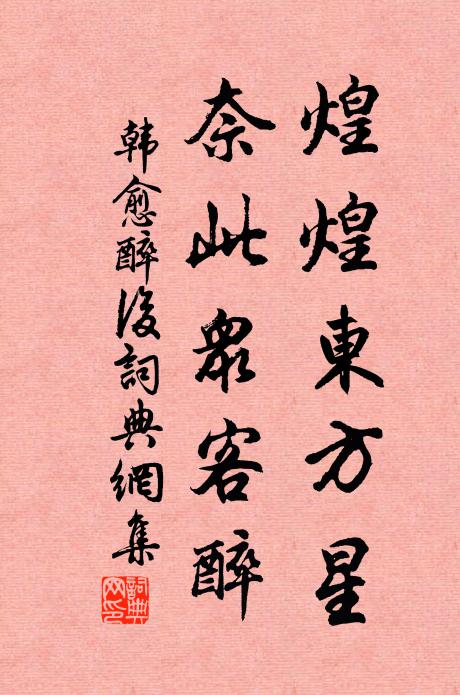 煌煌東方星
奈此眾客醉
韩愈醉後詞典網集
詞典網印